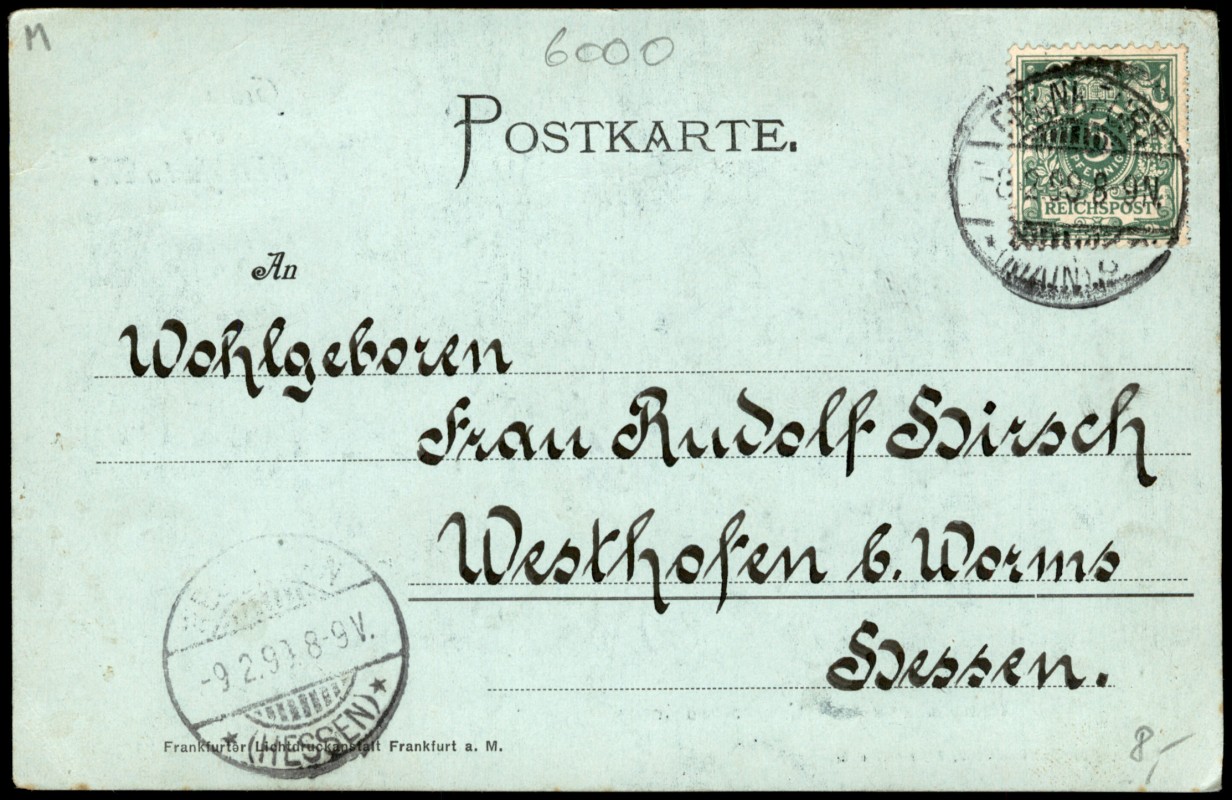 M
6000
POSTKARTE.
5
PFENNIG
REICHSPOST
-8.2.99.8-9N.
(MAIN)
An
Wohlgeboren
Frau Rudolf Hirsch
Westhofen b. Worms
Hessen.
-9.2.99.8-9V.
(HESSEN)
Frankfurter Lichtdruckanstalt Frankfurt a. M.
8,-